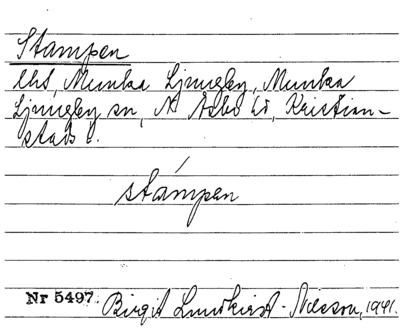 Stampen
lhs, Munka Ljungby, Munka
Ljungby sn, N Åsbo hd, Kristian-
stads l.
stámpen
Nr 5497. Birgit Lundkvist-Nilsson, 1941.